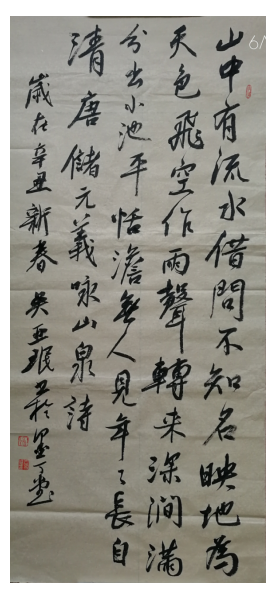 山中有流水借問不知名映地為
天色飛空作雨聲轉来深澗滿
分出小池平恬澹無人見年々長自
清唐儲元義咏山泉詩
歲在辛丑新春吳亞珉書於墨丁堂
6/